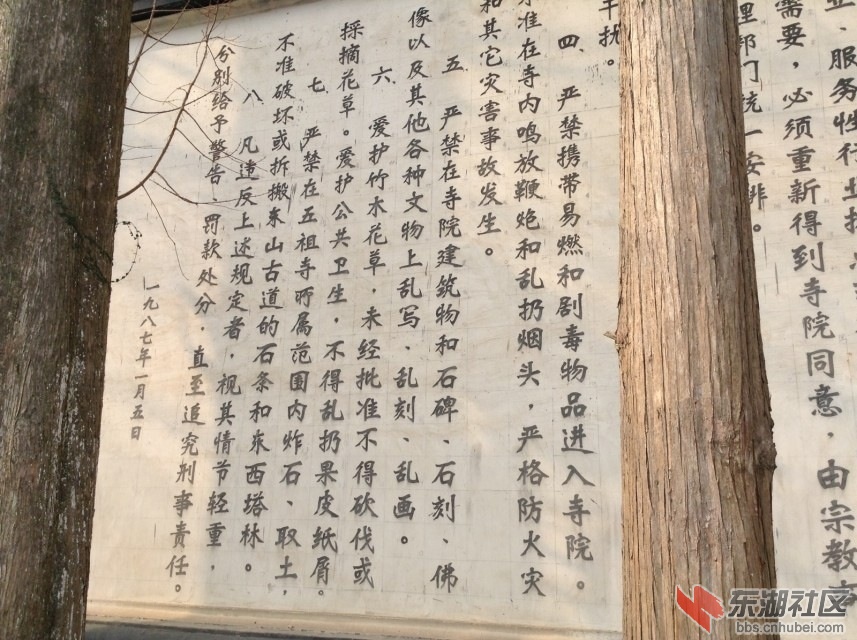 业、服务性行
需要，必须重新得到寺院同意，由宗教
理部门统一安排。
干扰。
四、严禁携带易燃和剧毒物品进入寺院。
不准在寺内鸣放鞭炮和乱扔烟头，严格防火灾
和其它灾害事故发生。
五、严禁在寺院建筑物和石碑、石刻、佛
像以及其他各种文物上乱写、乱刻、乱画。
六、爱护竹木花草，未经批准不得砍伐或
採摘花草。爱护公共卫生，不得乱扔果皮纸屑。
七、严禁在五祖寺所属范围内炸石、取土，
不准破坏或拆搬东山古道的石条和东西塔林。
八、凡违反上述规定者，视其情节轻重，
分别给予警告、罚款处分，直至追究刑事责任。
一九八七年一月五日
东湖社区
bbs.cnhubei.com